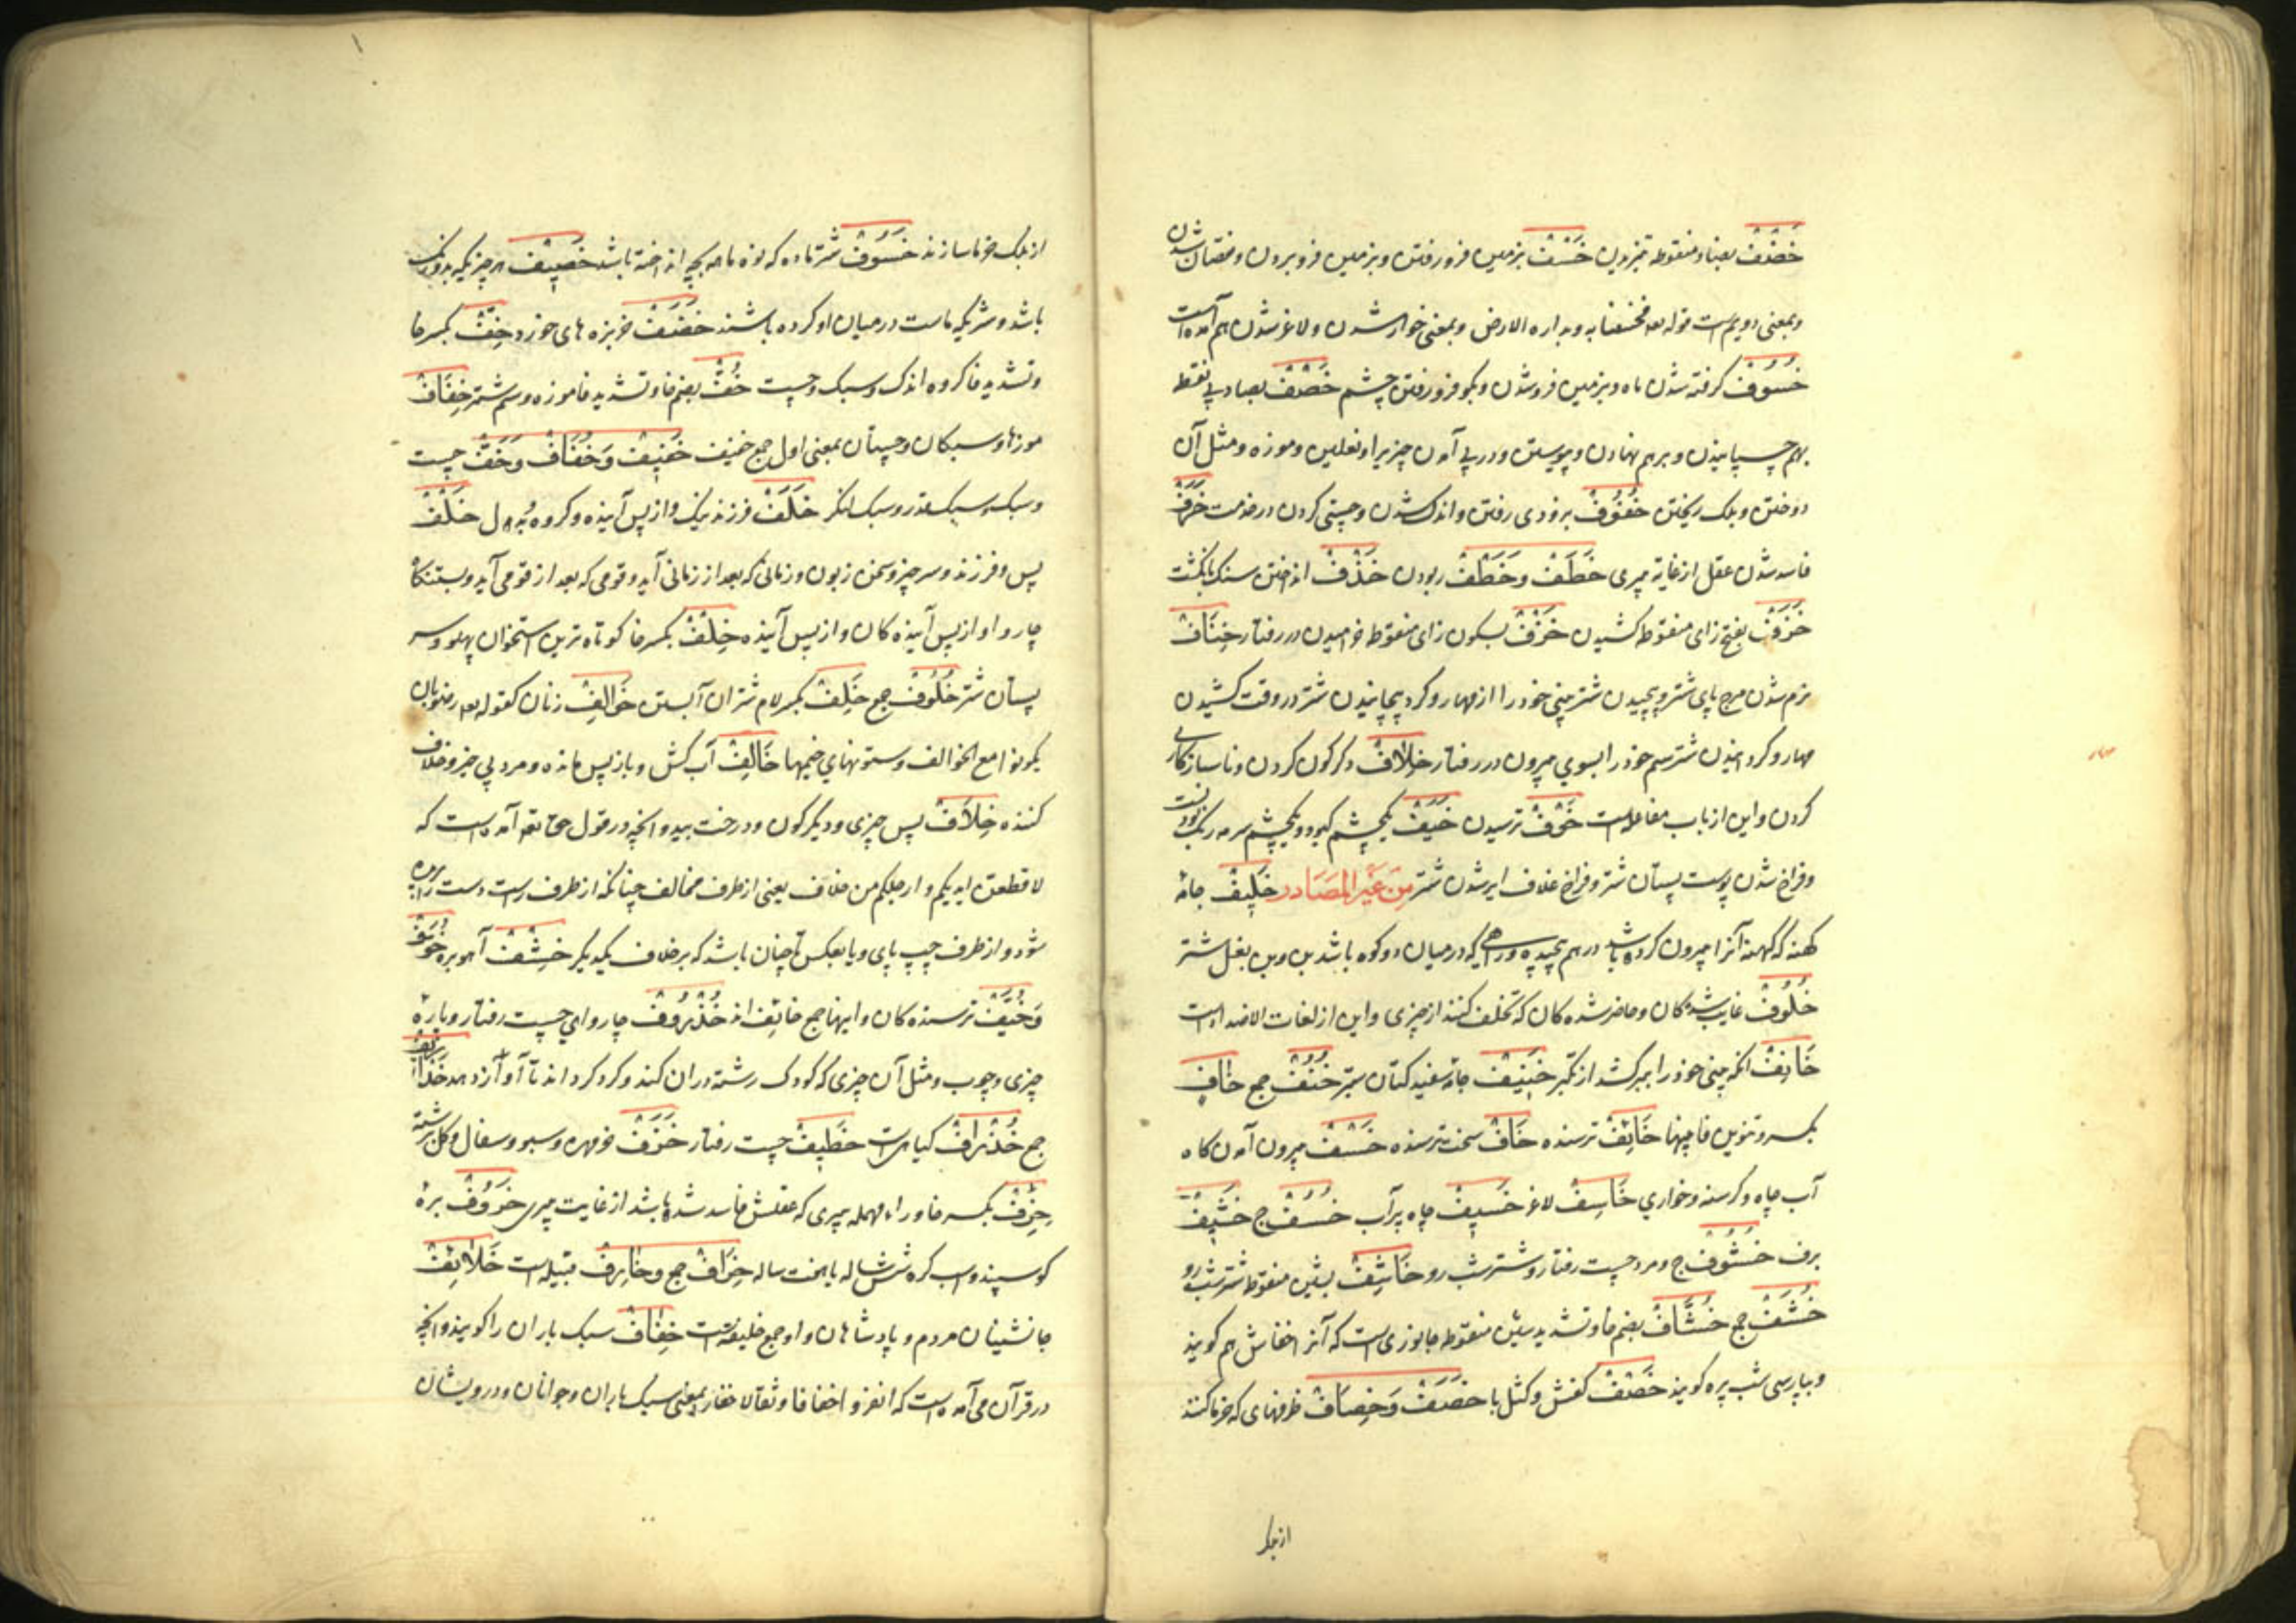 خَضْف بضاد منقوطه تیز دادن خَسْف بزمین فرو رفتن و بزمین فرو بردن و نقصان شدن
و بمعنی دویم است قوله تعه فخسفنا به و بداره الارض و بمعنی خوار شدن و لاغر شدن هم آمده است
خُسُوف گرفته شدن ماه و بزمین فرو شدن و بگو فرو رفتن چشم خَصْف بصاد بی نقطه
بهم چسپانیدن و برهم نهادن و پیوستن و در پی آمدن چیزیرا و نعلین و موزه و مثل آن
دوختن و برگ ریختن خُفُوف بزودی رفتن و اندک شدن و چستی کردن در خدمت خَرَف
فاسد شدن عقل از غایة پیری خَطَف وَ خَطْف ربودن خَذْف انداختن سنک بانگشت
خَزَف بفتح زای منقوطه کشیدن خَزْف بسکون زای منقوطه خرامیدن در رفتار خِنَاف
نرم شدن پای شتر و پیچیدن شتر بینی خود را از مهار و گرد پیچانیدن شتر در وقت کشیدن
مهار و گردانیدن شتر سم خود را بسوی بیرون در رفتار خِلَاف دگرگون کردن و ناسازگاری
کردن و این از باب مفاعله است خَوْف ترسیدن خَیَف یکچشم کبود و یکچشم سرمه رنگ بودن
و فراخ شدن پوست پستان شتر و فراخ غلاف ایر شدن شتر مِنْ غَیْرِ المَصَادر خَلِیف جامهٔ
کهنه که کهنهٔ آنرا بیرون کرده باشد درهم پیچیده و راهی که در میان دو کوه باشد بن بغل شتر
خُلُوف غایب شدگان و حاضر شده کان که تخلف کنند از چیزی و این از لغات الاضداد است
خَانِف آنکه بینی خود را بر کشد از تکبر خَنِیف جامهٔ سفید کتان ستبر خُنُف جمع خَافٍ
بکسر و تنوین فا خَائِف ترسنده خَافٌ سخت ترسنده خَسْف بیرون آمدن گاه
آب چاه و گرسنه و خواری خَاسِف لاغر خَسِیف چاه پر آب خُسُف ج خَشِیف
برف خُشُوف ج و مرد چست رفتار و شتر شب رو خَاشِف بشین منقوطه شتر شب رو
خُشَّف جمع خُشَّاف بضم خا و تشدید شین منقوطه جانوری است که آنرا خفاش هم گویند
و بپارسی شب پره گویند خَصْف کفش و کنش پا خَصَف وَ خِصَاف ظرفهای که خرما کنند
از برگ
از برگ خرما سازند خَسُوف شتر ماده که نه ماهه بچه انداخته باشد خَصِیف هر چیز یکه بدو رنگ
باشد و شیر یکه ماست در میان او کرده باشند خَضَف خربزه های خورد خِفّ بکسر خا
و تشدید فا گروه اندک و سبک و چست خُفّ بضم خا و تشدید فا موزه و سم شتر خِفَاف
موزها و سبکان و چستان بمعنی اول جمع خفیف خَفِیف وَ خُفَاف وَ خَفّ چست
و سبک و سبک قدر و سبک لنگر خَلَف فرزند نیک و از پس آینده و گروه بدل خَلْف
پس و فرزند و سر چیز و سخن زبون و زمانی که بعد از زمانی آید و قومی که بعد از قومی آید و بستنگاه
چاروا و از پس آینده کان و از پس آینده خِلْف بکسر خا کوتاه ترین استخوان پهلو و سر
پستان شتر خُلُوف جمع خَلِف بکسر لام شتران آبستن خَوَالِف زنان کقوله تعه رضوا بان
یکونوا مع الخوالف و ستونهای خیمها خَالِف آب کش و باز پس مانده و مرد بی خیر و خلاف
کننده خِلَاف پس چیزی و دیگرگون و درخت بید و آنچه در قول حق تعه آمده است که
لاقطعن ایدیکم و ارجلکم من خلاف یعنی از طرف مخالف چنانکه از طرف راست دست بریده
شود و از طرف چپ پای و یا بعکس تا چنان باشد که بر خلاف یکدیگر خِشْف آهو بره خُوَّف
وَ خُیَّف ترسنده کان و اینها جمع خائف اند خُذْرُوف چاروای چست رفتار و پارهٔ
چیزی و چوب و مثل آن چیزی که کودک رشته در آن کند و گرد گرداند تا آواز دهد خَذَارِیف
جمع خُذْرَاف گیاهی است خَطِیف چست رفتار خَزَف خرمهره و سبو و سفال و گل برشته
خَرِف بکسر خا و راء مهمله پیری که عقلش فاسد شده باشد از غایت پیری خَرُوف برهٔ
گوسپند و اسب کره شش ماهه یا هفت ساله خِرَاف جمع وَ خَارِف قبیله است خَلَائِف
جانشینان مردم و پادشاهان و او جمع خلیفه است خِفَاف سبک باران را گویند و آنچه
در قرآن می آمده است که انفروا خفافا و ثقالا خفار بمعنی سبک باران و جوانان و درویشان